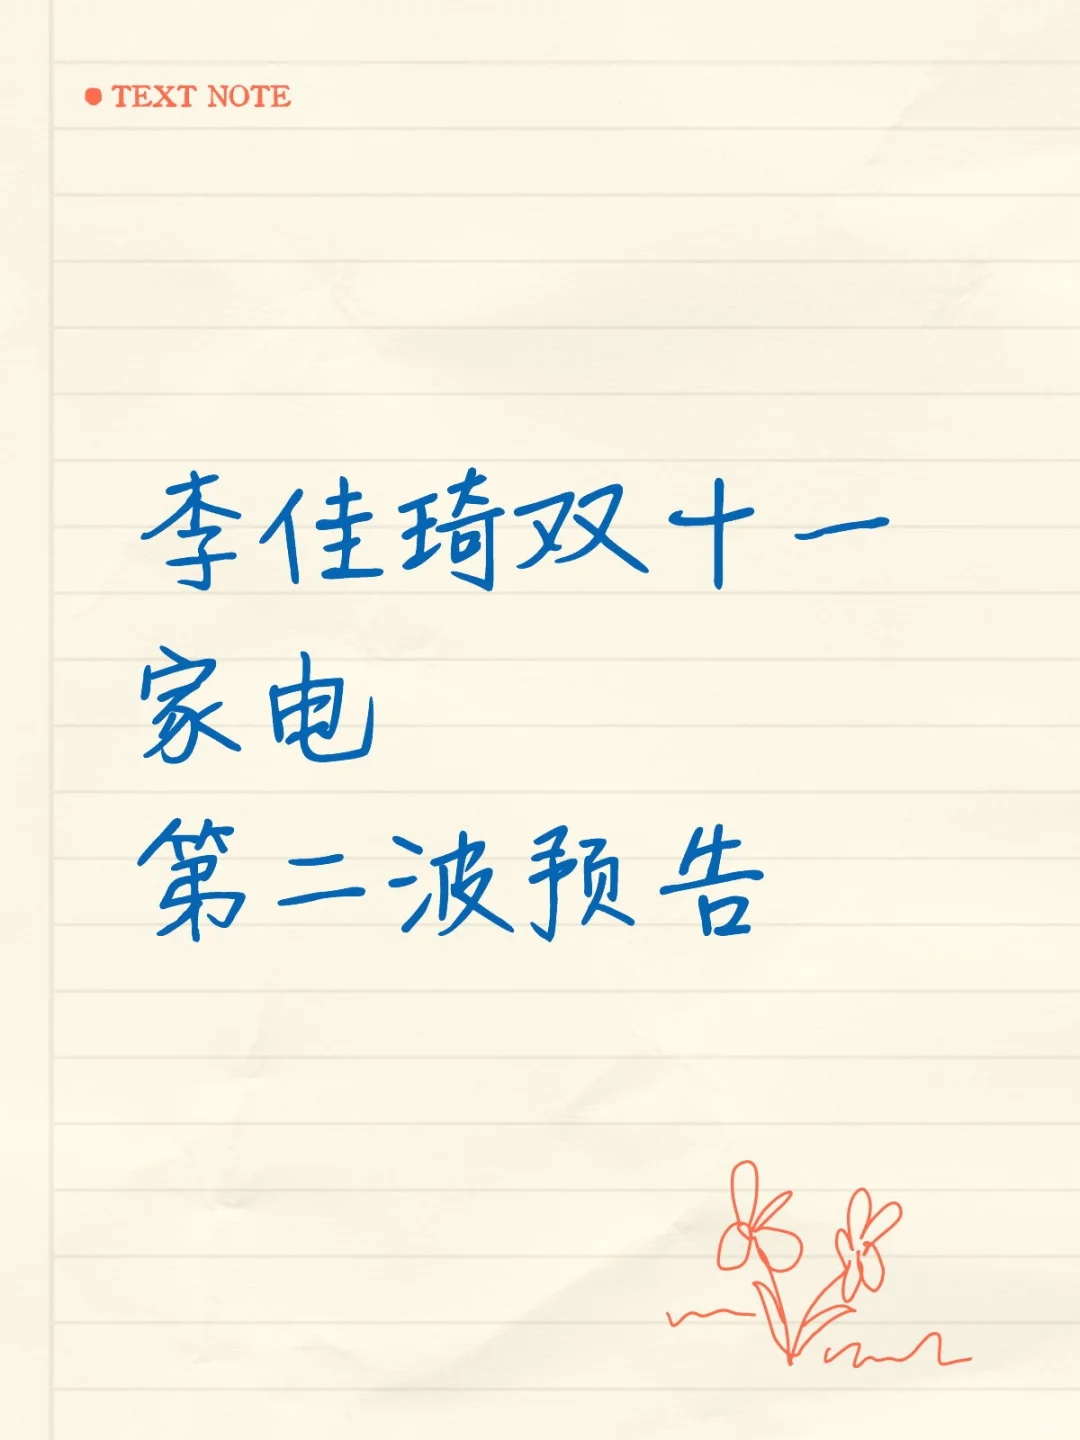 TEXT NOTE
李佳琦双十一
家电
第二波预告